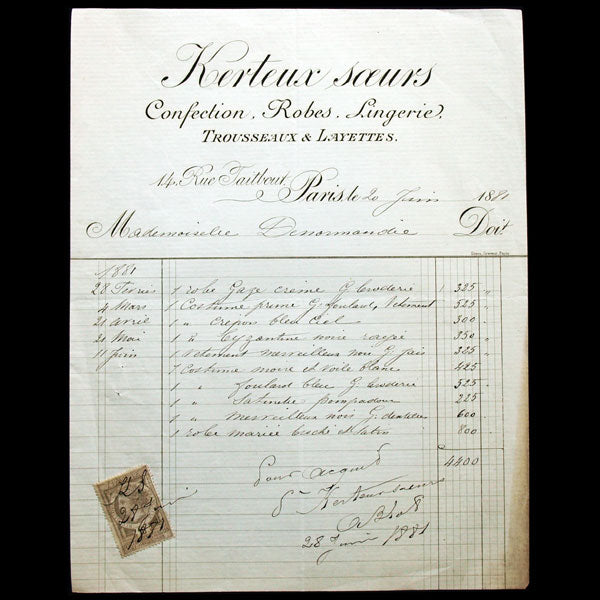 Kerteux sœurs
Confection, Robes, Lingerie,
TROUSSEAUX & LAYETTES.
14, Rue Taitbout
Paris, le 20 Juin 1881
Mademoiselle Denormandie Doit
1881
28 Fevrier 1 robe Gaze crème G broderie 1 325 "
4 Mars 1 Costume prune G foulard, Vetement 525 "
21 avril 1 " Crépon bleu Ciel 300 "
21 Mai 1 " Byzantine noire rayée 350 "
11 Juin 1 Vetement merveilleux noir G jais 325 "
1 Costume moire et voile blanc 425
1 " foulard bleu G broderie 525 "
1 " Satinette pompadour 225
1 " Merveilleux noir G dentelle 600 "
1 robe mariée et Satin 800 "
4400
Pour acquit
Kerteux soeurs
28 Juin 1881
28
1881